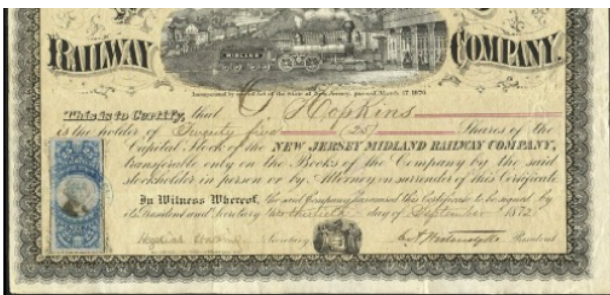 RAILWAY COMPANY.
MIDLAND
Incorporated by an act of the State of New Jersey, passed March 17, 1870.
This is to Certify, that C Hopkins
is the holder of Twenty five (25) Shares of the
Capital Stock of the NEW JERSEY MIDLAND RAILWAY COMPANY,
transferable only on the Books of the Company by the said
stockholder in person or by Attorney on surrender of this Certificate
In Witness Whereof, the said Company has caused this Certificate to be signed by
its President and Secretary this thirtieth day of September 1872
Secretary President